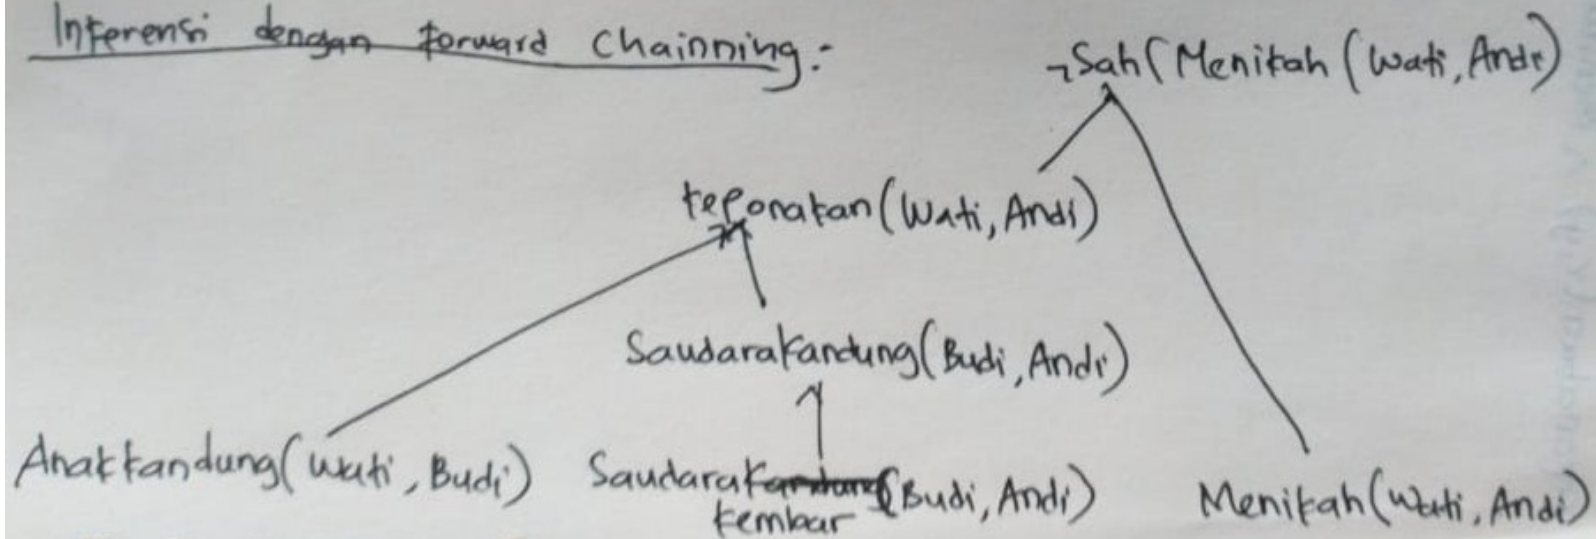 Inferensi dengan forward Chainning :-
¬Sah(Menikah(Wati, Andi)
keponakan(Wati, Andi)
Saudarakandung(Budi, Andi)
Anakkandung(Wati, Budi) Saudarakandung(Budi, Andi) Menikah(Wati, Andi)
kembar